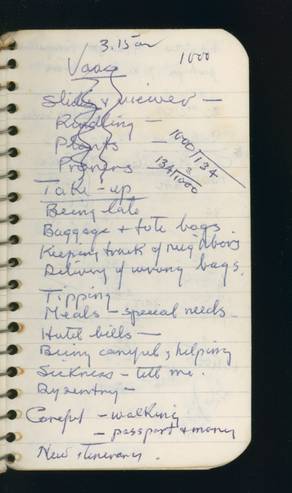 3.15am
1000
Slides & viewer —
Kindling —
Plants —
Pruners —
1000/134
134/1000
Take - up
Being late
Baggage & tote bags
Keeping track of neighbors
Delivery of wrong bags.
Tipping
Meals — special needs
Hotel bills —
Being careful, helping
Sickness — tell me.
Dysentry —
Careful — walking
— passport & money
New itinerary.